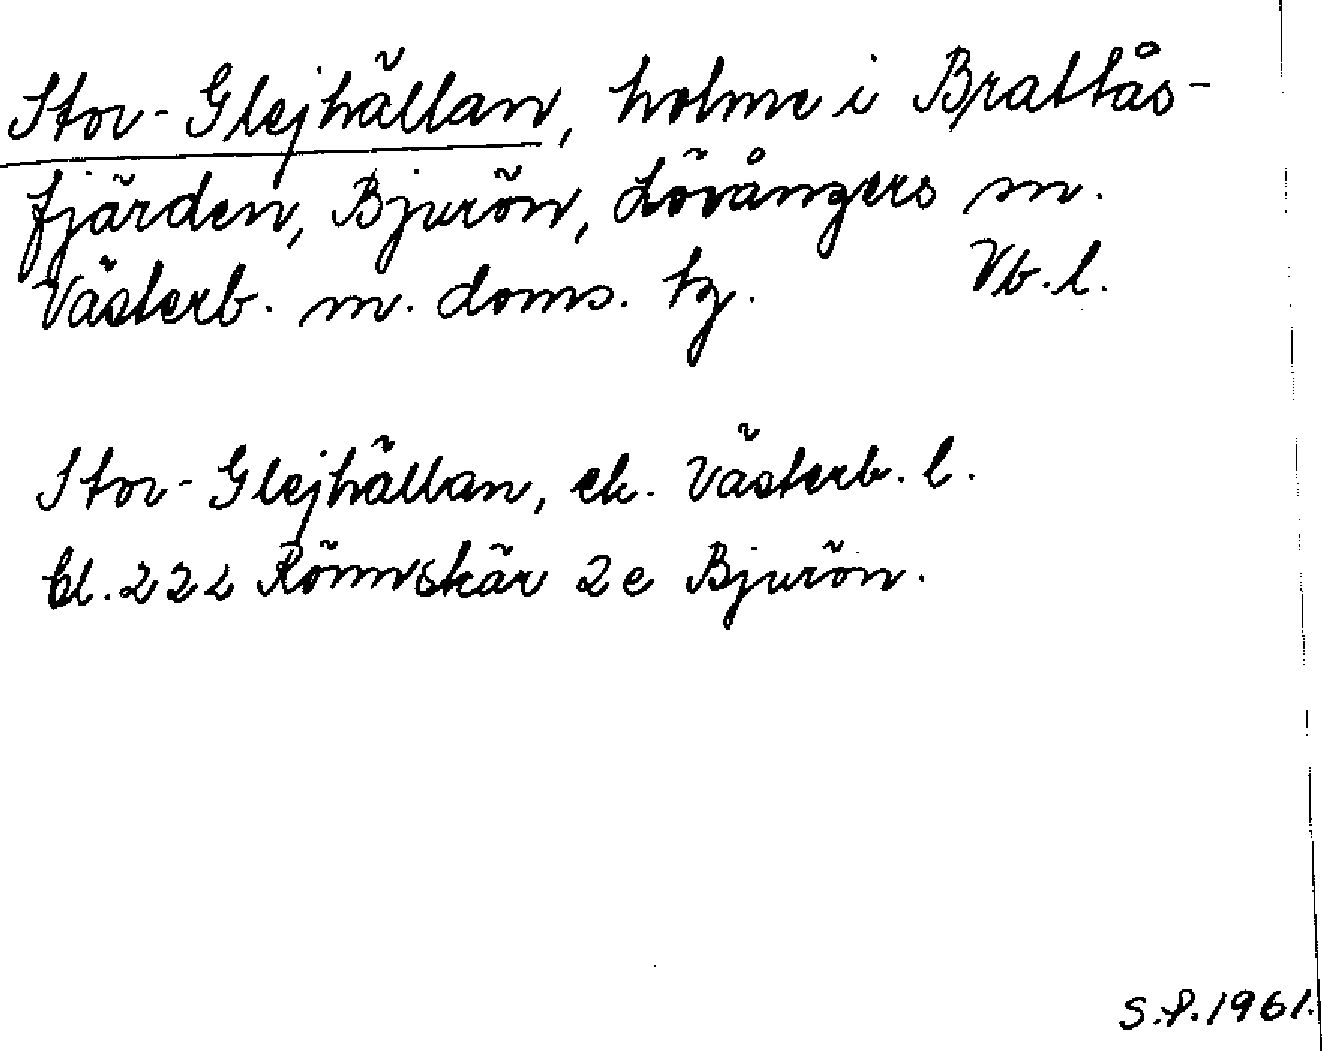 Stor-Glejhällan, holme i Brattås-
fjärden, Bjurön, Lövångers sn.
Västerb. m. doms. tg. Vb.l.
Stor-Glejhällan, ek. Västerb. l.
bl. 222 Rönnskär 2e Bjurön.
S.P. 1961.